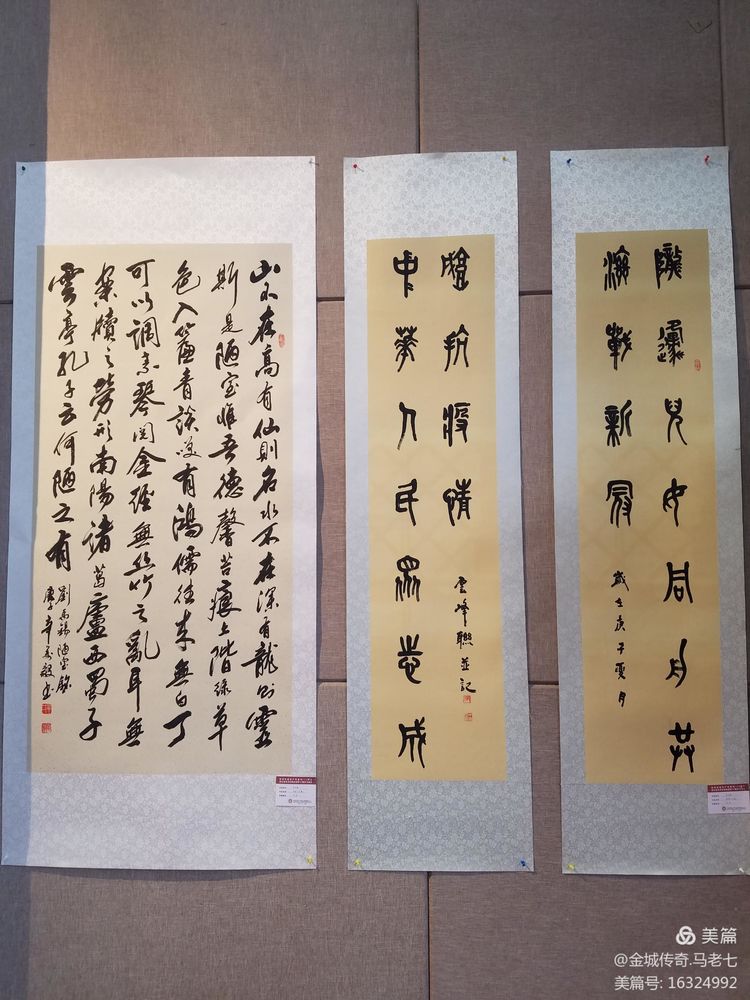 隴邍兒女同舟共
濟戰新冠
歲在庚子夏月
中華人民眾志成
城抗疫情
雲峰聯並記
山不在高有仙則名水不在深有龍則靈
斯是陋室惟吾德馨苔痕上階綠草
色入簾青談笑有鴻儒往來無白丁
可以調素琴閱金經無絲竹之亂耳無
案牘之勞形南陽諸葛廬西蜀子
雲亭孔子云何陋之有
劉禹錫陋室銘
美篇
@金城传奇.马老七
美篇号: 16324992